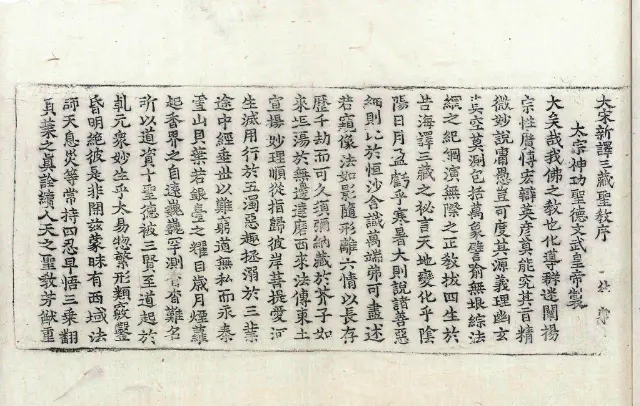 大宋新譯三藏聖教序
太宗神功聖德文武皇帝製
大矣哉我佛之教也化導群迷闡揚
宗性廣博宏辯英彥莫能究其旨精
微妙說庸愚豈可度其源義理幽玄
真空莫測包括萬象譬喻無垠綜法
網之紀綱演無際之正教拔四生於
苦海譯三藏之秘言天地變化乎陰
陽日月盈虧乎寒暑大則說諸善惡
細則比於恒沙含識萬端弗可盡述
若窺像法如影隨形離六情以長存
歷千劫而可久須彌納藏於芥子如
來坦湯於無邊達磨西來法傳東土
宣揚妙理順從指歸彼岸菩提愛河
生滅用行於五濁惡趣拯溺於三業
途中經垂世以難窮道無私而永泰
雪山貝葉若銀臺之耀目歲月煙蘿
起香界之自遠巍巍罕測杳杳難名
所以道資十聖德被三賢至道起於
乹元衆妙生乎太易惣繁形類竅鑿
昏明絕彼是非開茲蒙昧有西域法
師天息灾等常持四忍早悟三乘翻
貝葉之真詮續人天之聖教芳猷重